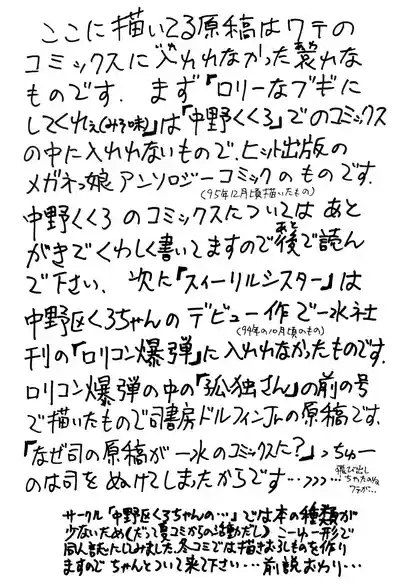 ここに描いてる原稿はワテの
コミックスに入れれなかった哀れな
ものです. まず「ロリーなブギに
してくれぇ(みそ味)」は「中野くくろ」でのコミックス
の中に入れれないもので、ヒット出版の
メガネっ娘アンソロジーコミックのものです.
(95年12月頃描いたもの)
中野くくろのコミックスについてはあと
がきでくわしく書いてますので後で読ん
で下さい、次に「スィーリルシスター」は
中野区くろちゃんのデビュー作で一水社
(94年の10月頃のもの)
刊の「ロリコン爆弾」に入れれなかったものです.
ロリコン爆弾の中の「孤独さん」の前の号
で描いたもので司書房ドルフィンJr.の原稿です.
「なぜ司の原稿が一水のコミックスに?」っちゅー
のは司をぬけてしまったからです…
飛び出し
ちゃったのね
ワテが…
サークル「中野区くろちゃんの…」では本の種類が
少ないため(だって夏コミからの活動だし)こーゆー形で
同人誌だしてみました、冬コミでは描きおろしものを作り
ますのでちゃんとついて来て下さい…前説おわり…